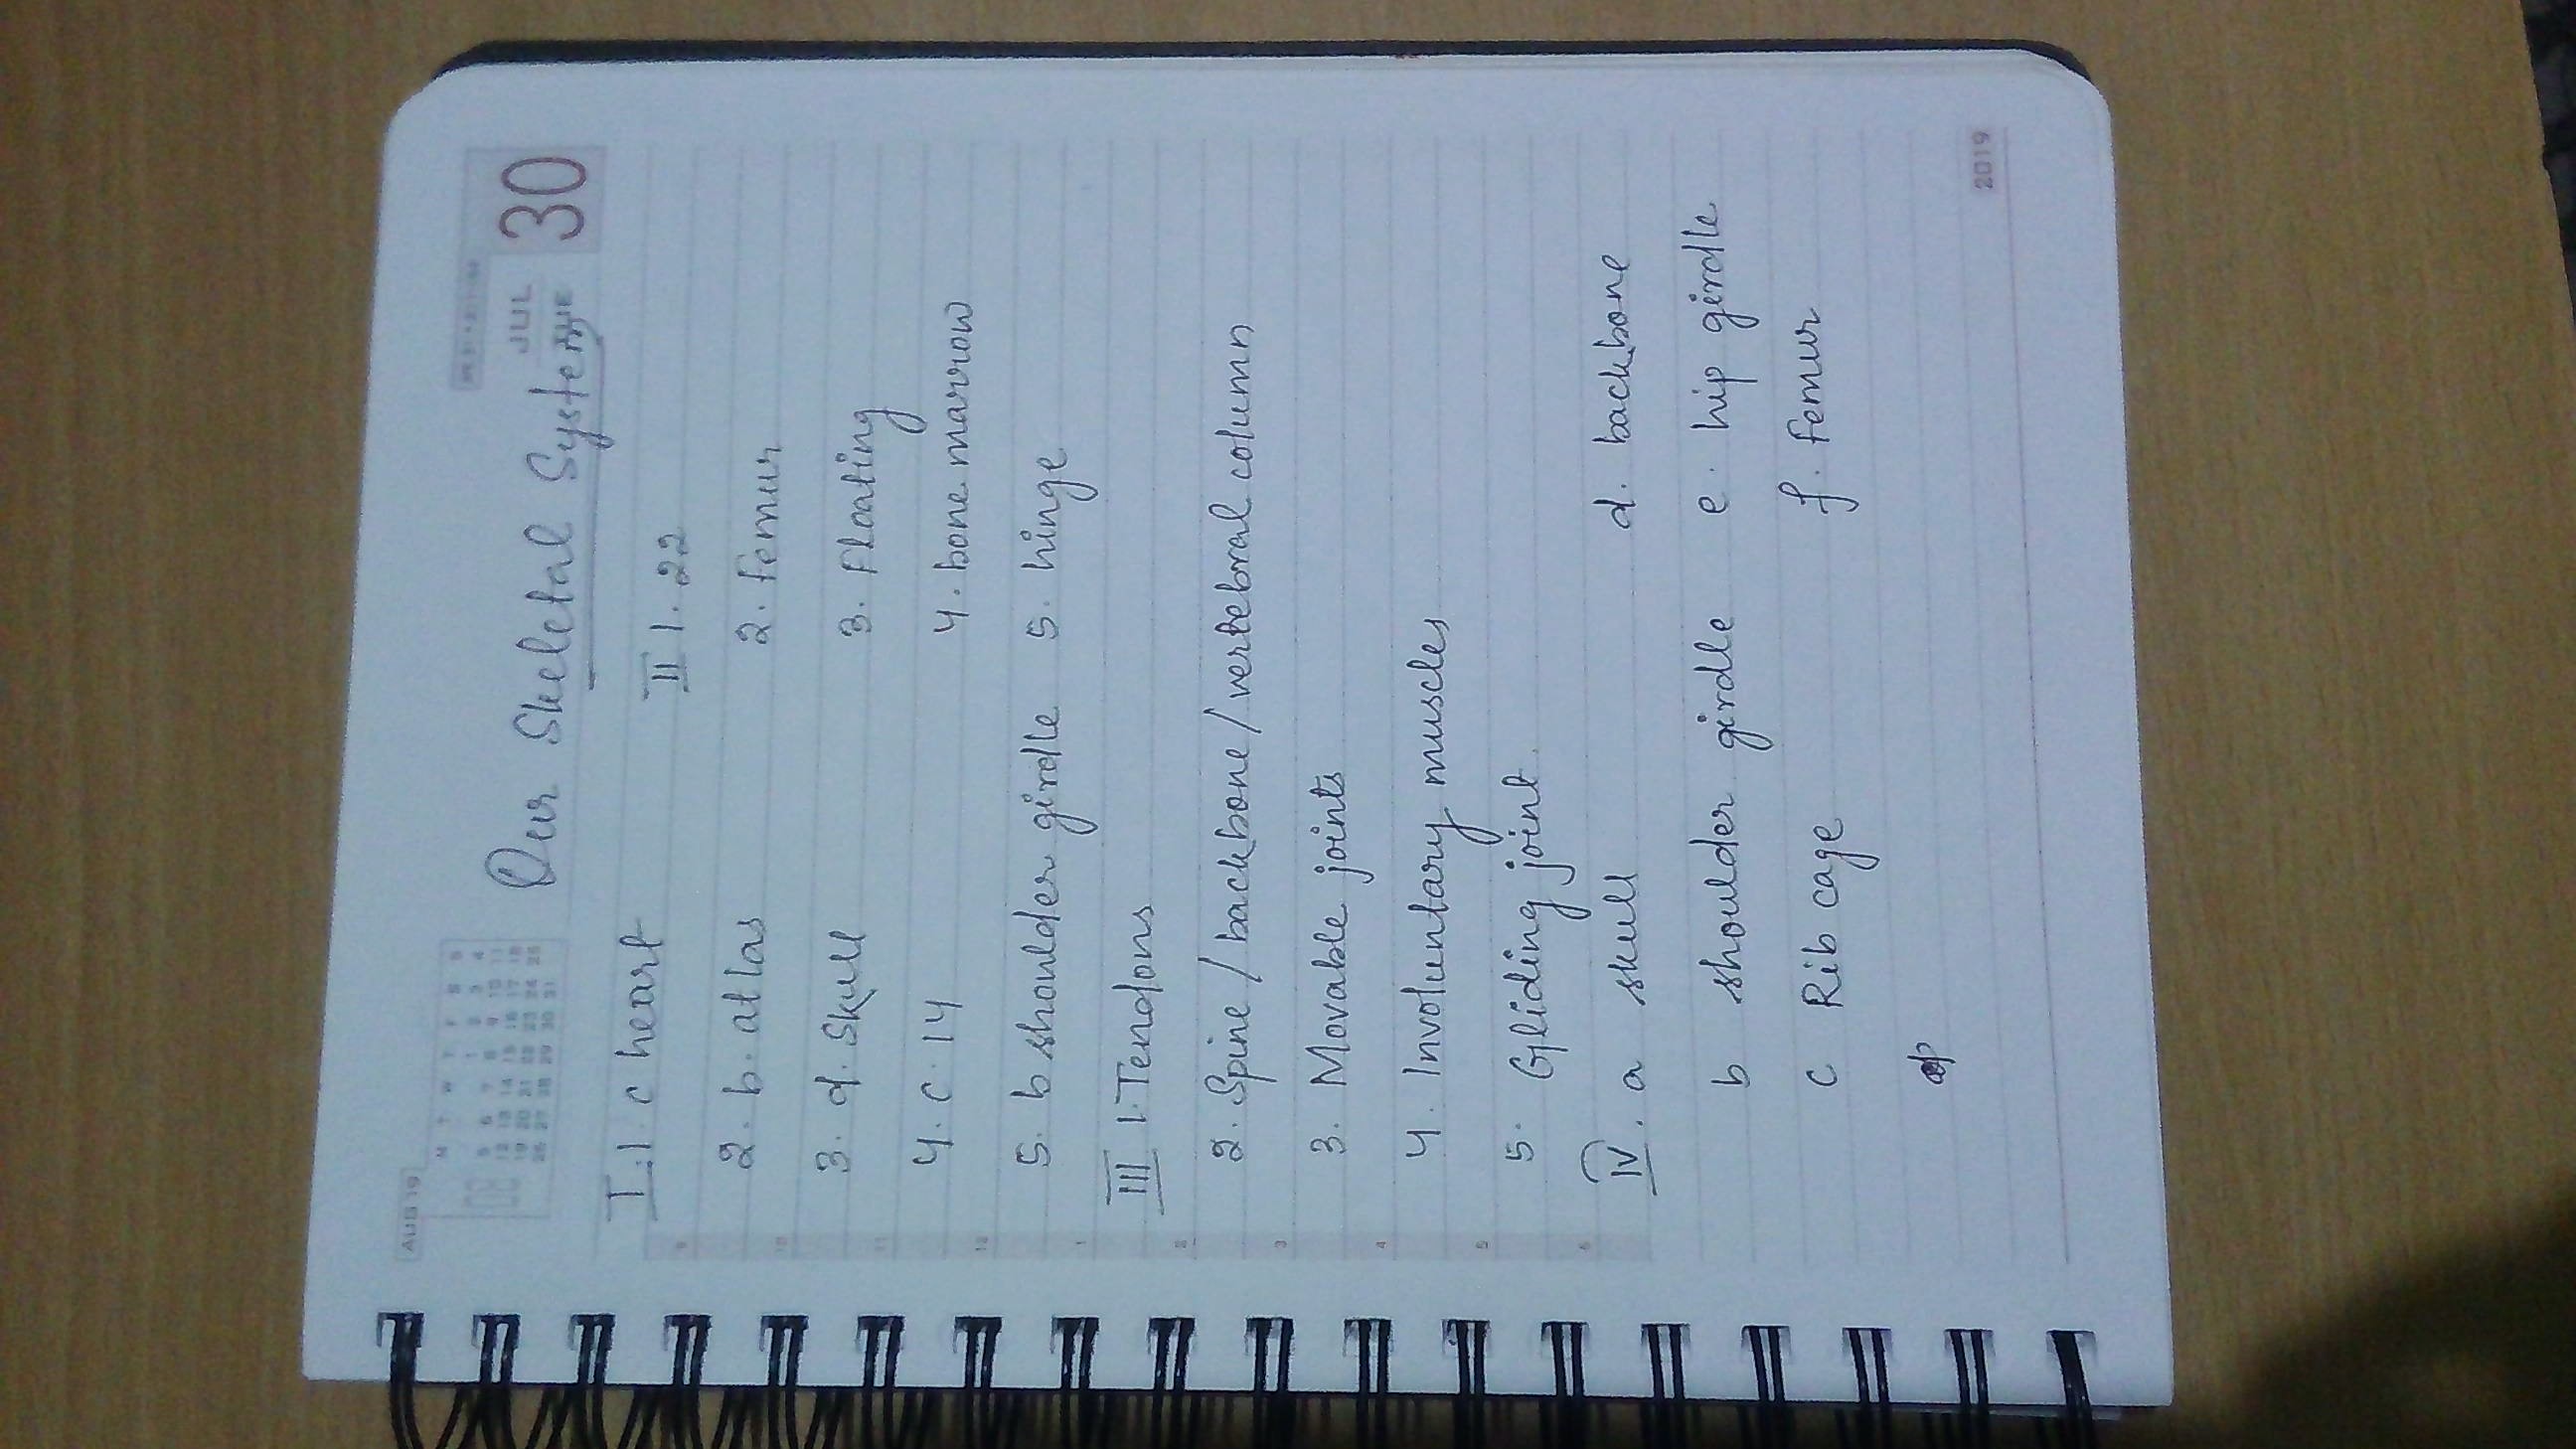 AUG 19
JUL 30
TUE
Our Skeletal System
I. 1. c heart
II 1. 22
2. b. atlas
2. femur
3. d. skull
3. Floating
4. c. 14
4. bone marrow
5. b shoulder girdle 5. hinge
III 1. Tendons
2. Spine / backbone / vertebral column
3. Movable joints
4. Involuntary muscles
5. Gliding joint.
IV. a skull d. backbone
b shoulder girdle e. hip girdle
c Rib cage f. femur
9
10
11
12
1
2
3
4
5
6
2019